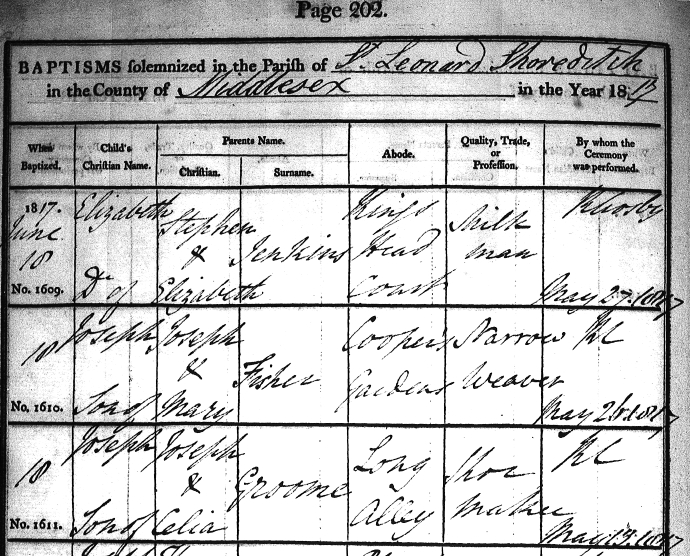 Page 202.
BAPTISMS solemnized in the Parish of St. Leonard Shoreditch
in the County of Middlesex in the Year 1817
When Baptized. Child's Christian Name. Parents Name. Christian. Surname. Abode. Quality, Trade, or Profession. By whom the Ceremony was performed.
1817. June 18 No. 1609. Elizabeth Dr of Stephen & Elizabeth Jenkins Kings Head Court Milk man May 27. 1817
18 No. 1610. Joseph Son of Joseph & Mary Fisher Cooper's Gardens Narrow Weaver May 23rd 1817
18 No. 1611. Joseph Son of Joseph & Celia Groome Long Alley Shoe maker May 13. 1817